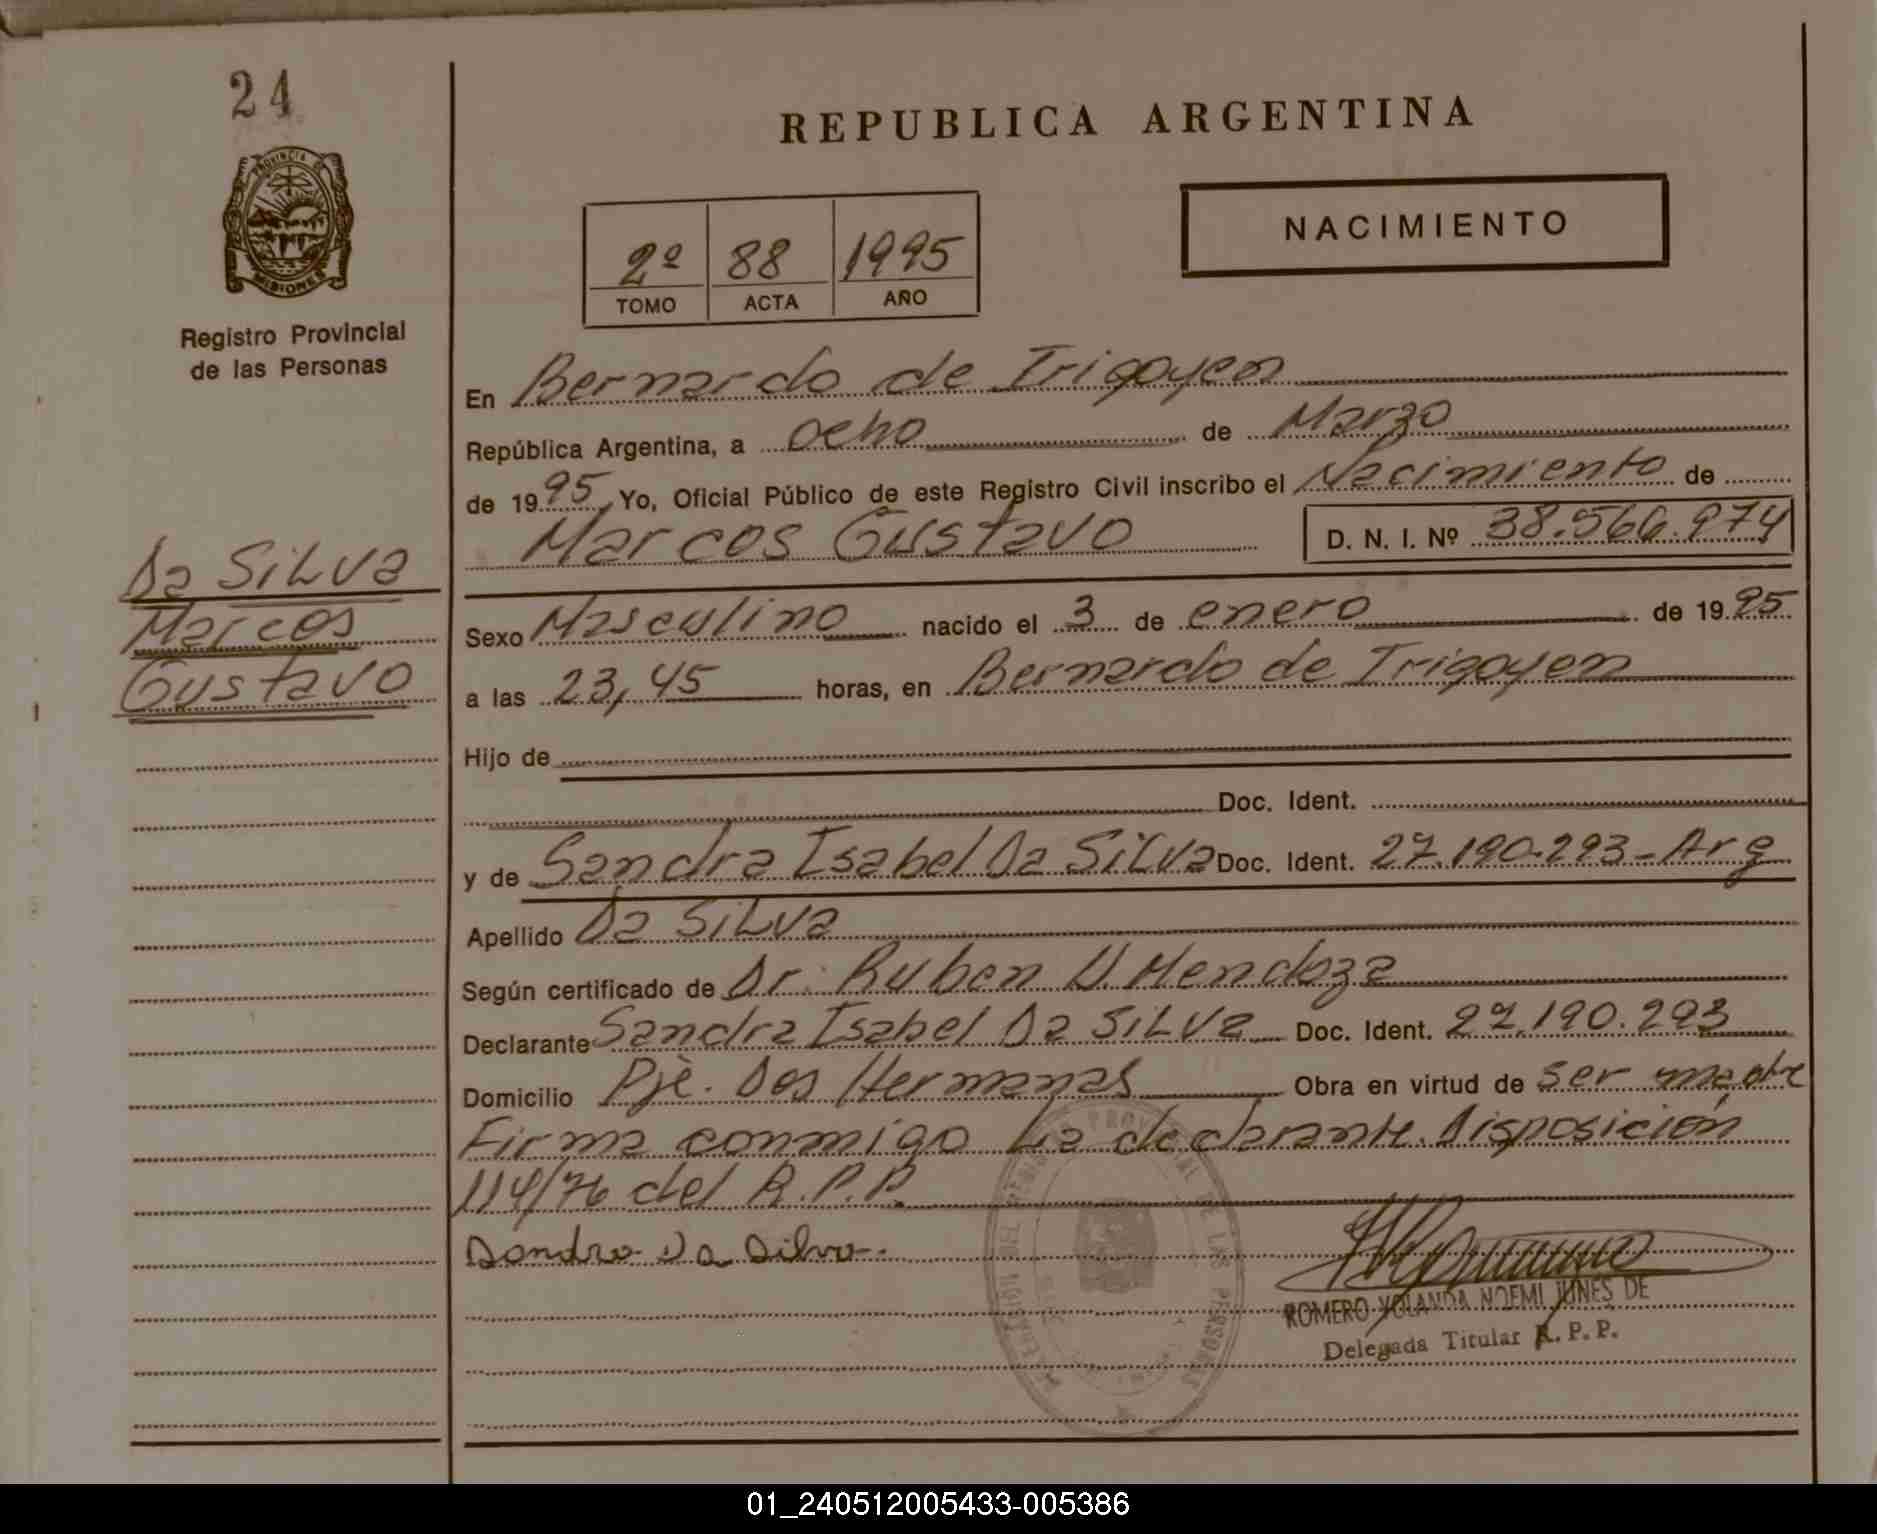 24
PROVINCIA DE
MISIONES
Registro Provincial
de las Personas
Da SiLva
Marcos
Gustavo
REPUBLICA ARGENTINA
NACIMIENTO
2º 88 1995
TOMO ACTA AÑO
En Bernardo de Irigoyen
República Argentina, a ocho de Marzo
de 1995, Yo, Oficial Público de este Registro Civil inscribo el Nacimiento de
Marcos Gustavo D. N. I. Nº 38.566.974
Sexo Masculino nacido el 3 de enero de 1995
a las 23,45 horas, en Bernardo de Irigoyen
Hijo de
Doc. Ident.
y de Sandra Isabel Da SiLva Doc. Ident. 27.190.293-Arg
Apellido Da SiLva
Según certificado de Dr. Ruben D. Mendoza
Declarante Sandra Isabel Da SiLva Doc. Ident. 27.190.293
Domicilio Pje. Dos Hermanas Obra en virtud de ser madre
Firma conmigo La declarante. Disposición
114/76 del R.P.P.
Sandra Da Silva.
ROMERO YOLANDA NOEMI JUNES DE
Delegada Titular R. P. P.
01_240512005433-005386